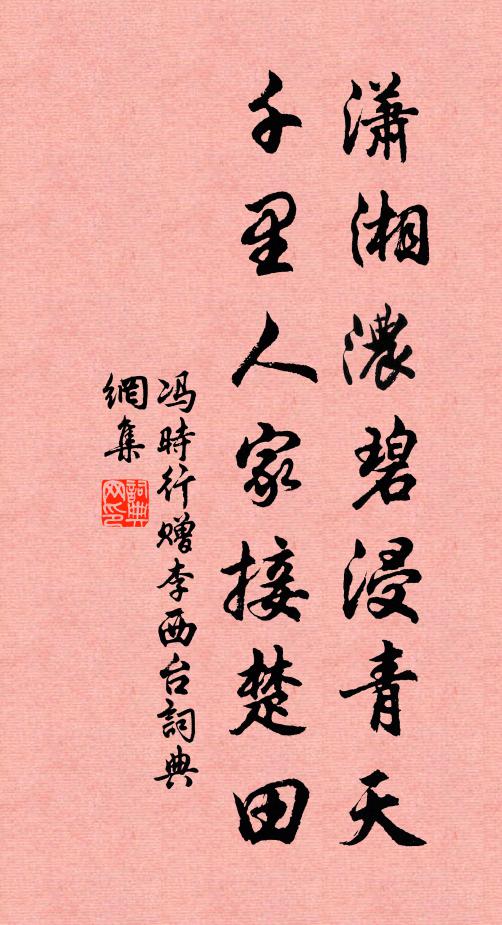 瀟湘濃碧浸青天
千里人家接楚田
冯時行赠李西台詞典
網集
詞典網印